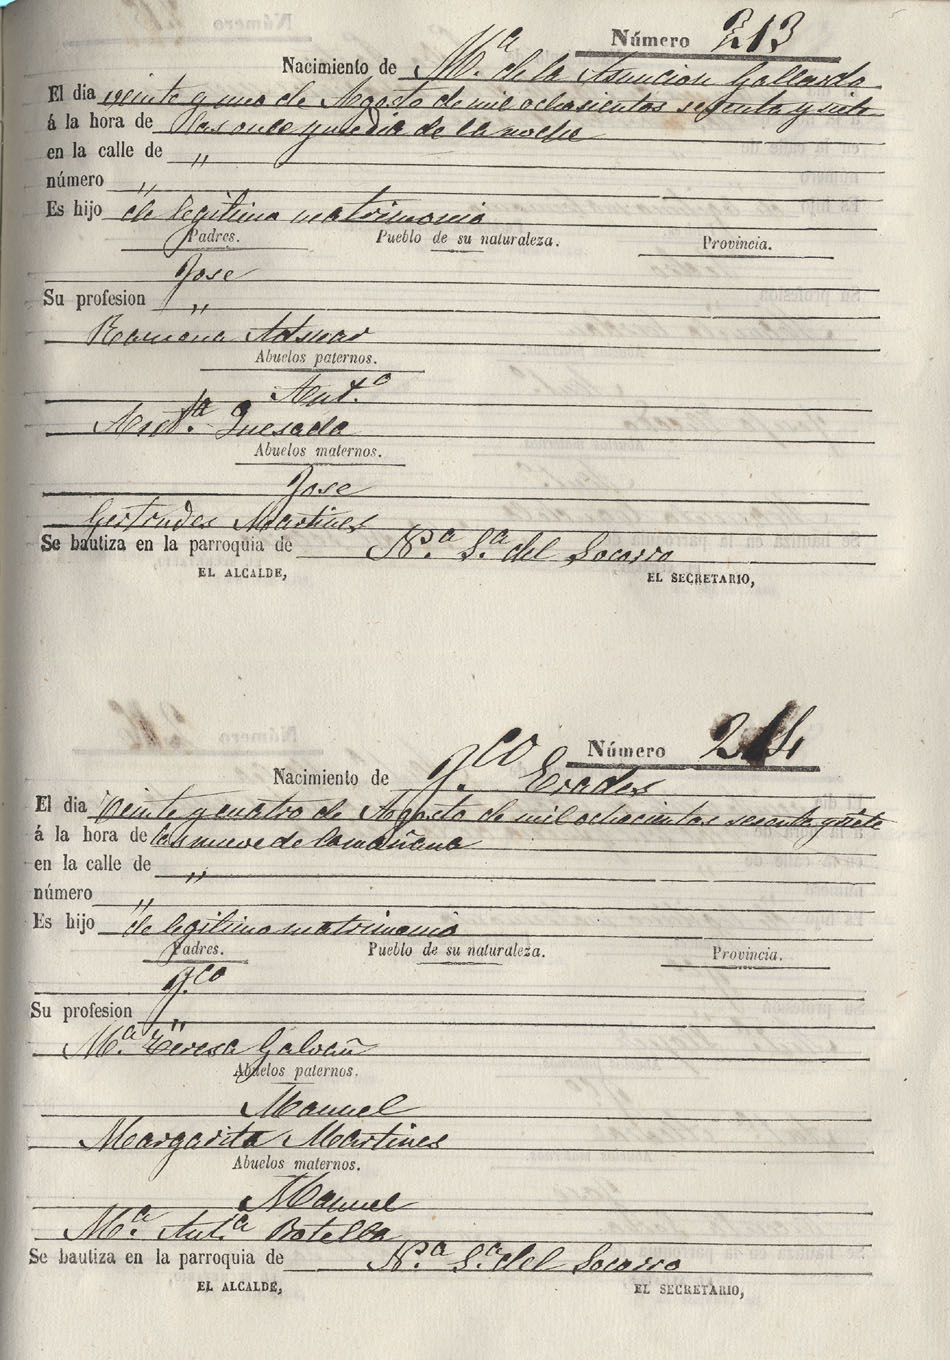 Número 213
Nacimiento de M.ª de la Asuncion Gallardo
El dia veinte y uno de Agosto de mil ochosientos sesenta y siete
á la hora de las once y media de la noche
en la calle de "
número "
Es hijo de legitimo matrimonio
Padres. Pueblo de su naturaleza. Provincia.
Jose
Su profesion "
Ramona Adsuar
Abuelos paternos.
Ant.º
Ant.ª Quesada
Abuelos maternos.
Jose
Gertrudes Martines
Se bautiza en la parroquia de N.ª S.ª del Socorro
EL ALCALDE, EL SECRETARIO,
Número 214
Nacimiento de F.co Erades
El dia Veinte y cuatro de Agosto de mil ochocientos sesenta y siete
á la hora de las nueve de la mañana
en la calle de "
número "
Es hijo de legitimo matrimonio
Padres. Pueblo de su naturaleza. Provincia.
F.co
Su profesion "
M.ª Teresa Galvañ
Abuelos paternos.
Manuel
Margarita Martines
Abuelos maternos.
Manuel
M.ª Ant.ª Botella
Se bautiza en la parroquia de N.ª S.ª del Socorro
EL ALCALDE, EL SECRETARIO,